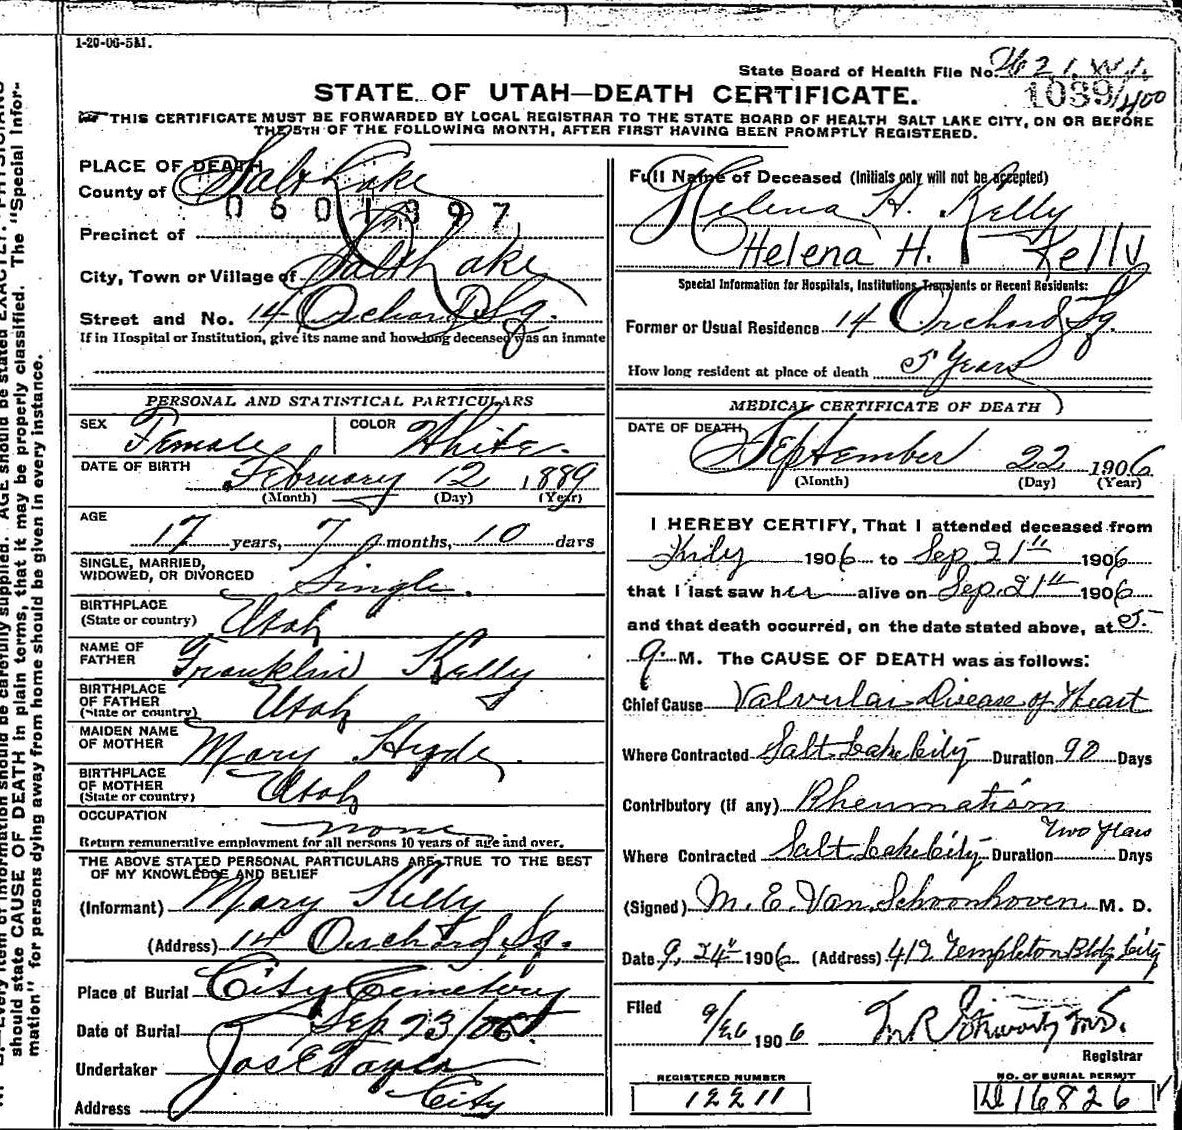 1-20-06-5M.
State Board of Health File No.
1039/400
STATE OF UTAH—DEATH CERTIFICATE.
THIS CERTIFICATE MUST BE FORWARDED BY LOCAL REGISTRAR TO THE STATE BOARD OF HEALTH SALT LAKE CITY, ON OR BEFORE
THE 5TH OF THE FOLLOWING MONTH, AFTER FIRST HAVING BEEN PROMPTLY REGISTERED.
PLACE OF DEATH
County of Salt Lake
0601397
Precinct of
City, Town or Village of Salt Lake
Street and No. 14 Orchard Sq.
If in Hospital or Institution, give its name and how long deceased was an inmate
PERSONAL AND STATISTICAL PARTICULARS
SEX Female COLOR White.
DATE OF BIRTH February 12 1889
(Month) (Day) (Year)
AGE
17 years, 7 months, 10 days
SINGLE, MARRIED,
WIDOWED, OR DIVORCED Single.
BIRTHPLACE
(State or country) Utah
NAME OF
FATHER Franklin Kelly
BIRTHPLACE
OF FATHER
(State or country) Utah
MAIDEN NAME
OF MOTHER Mary Hyde
BIRTHPLACE
OF MOTHER
(State or country) Utah
OCCUPATION none
Return remunerative employment for all persons 10 years of age and over.
THE ABOVE STATED PERSONAL PARTICULARS ARE TRUE TO THE BEST
OF MY KNOWLEDGE AND BELIEF
(Informant) Mary Kelly
(Address) 14 Orchard Sq.
Place of Burial City Cemetery
Date of Burial Sep 23/06
Undertaker Jos E Taylor
Address City
Full Name of Deceased (Initials only will not be accepted)
Helena H. Kelly
Helena H. Kelly
Special Information for Hospitals, Institutions, Transients or Recent Residents:
Former or Usual Residence 14 Orchard Sq.
How long resident at place of death 5 Years
MEDICAL CERTIFICATE OF DEATH
DATE OF DEATH September 22 1906
(Month) (Day) (Year)
I HEREBY CERTIFY, That I attended deceased from
July 1906 to Sep. 21" 1906
that I last saw her alive on Sep. 21" 1906
and that death occurred, on the date stated above, at 5
M. The CAUSE OF DEATH was as follows:
Chief Cause Valvular Disease of Heart
Where Contracted Salt Lake City Duration 90 Days
Contributory (if any) Rheumatism
Two Years
Where Contracted Salt Lake City Duration Days
(Signed) M. E. Van Schoonhoven M. D.
Date 9, 24" 1906 (Address) 419 Templeton Bldg City
Filed 9/26 1906
Registrar
REGISTERED NUMBER
12211
NO. OF BURIAL PERMIT
16826
should state CAUSE OF DEATH in plain terms, that it may be properly classified. The "Special Infor-
mation" for persons dying away from home should be given in every instance.